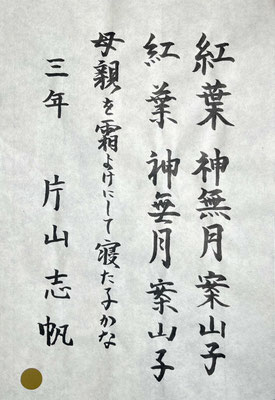 紅葉神無月案山子
紅葉神無月案山子
母親を霜よけにして寝た子かな
三年 片山志帆